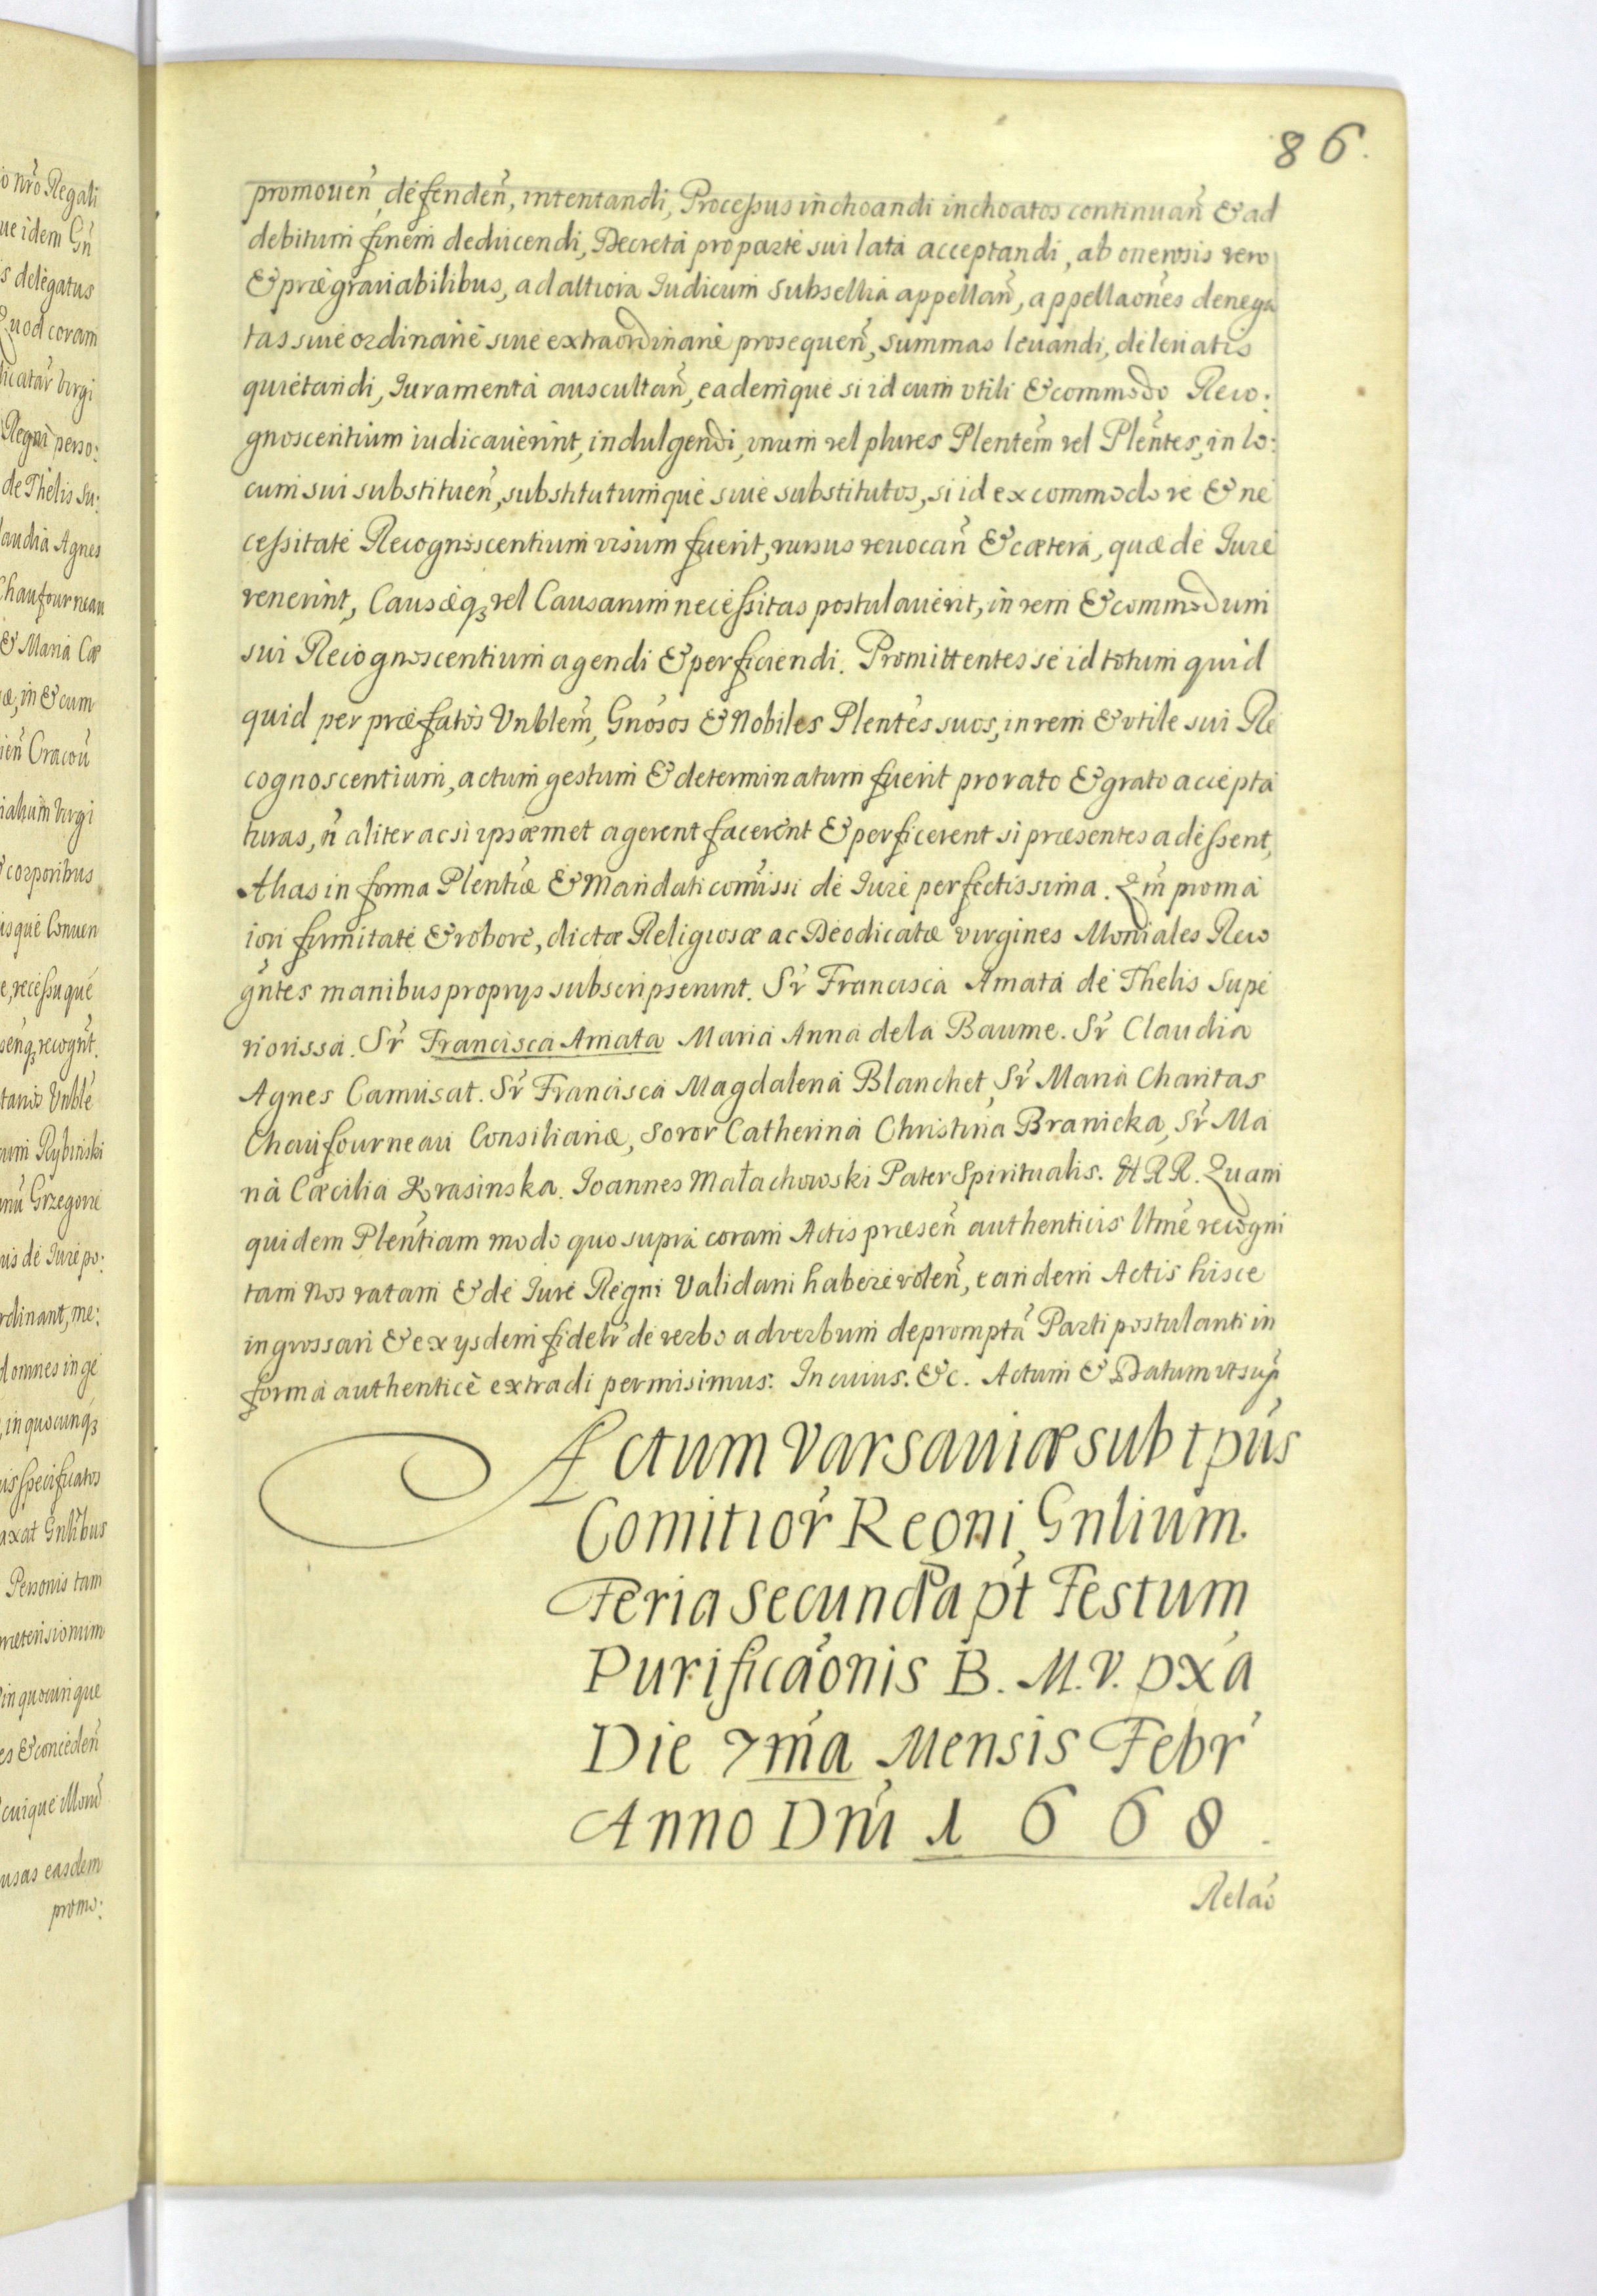 86.
promoueñ, defendeñ, intentandi, Processus inchoandi inchoatos continuañ & ad
debitum finem deducendi, Decreta pro parte sui lata acceptandi, ab onerosis vero
& prægrauabilibus, ad altiora Iudicum subsellia appellañ, appellaões denega
tas siue ordinarie siue extraordinarie prosequeñ, summas leuandi, de leuatis
quietandi, Iuramenta auscultañ, eademque si id cum vtili & commodo Reco:
gnoscentium iudicauerint, indulgendi, vnum vel plures Plentem vel Plentes, in lo:
cum sui substitueñ, substitutumque siue substitutos, si id ex commodo re & ne
cessitate Recognoscentium visum fuerit, rursus reuocañ & cætera, quæ de Iure
venerint, Causæq3 vel Causarum necessitas postulauerit, in rem & commodum
sui Recognoscentium agendi & perficiendi. Promittentes se id totum quid
quid per præfatos Vnblem, Gnosos & Nobiles Plentes suos, in rem & vtile sui Re
cognoscentium, actum gestum & determinatum fuerit pro rato & grato accepta
turas, ñ aliter ac si ipsæmet agerent facerent & perficerent si præsentes adessent,
Alias in forma Plentiæ & Mandati comissi de Iure perfectissima. Qm pro ma
iori firmitate & robore, dictæ Religiosæ ac Deodicatæ virgines Moniales Reco
gntes manibus proprys subscripserunt. Sr Francisca Amata de Thelis Supe
riorissa. Sr Francisca Amata Maria Anna de la Baume. Sr Claudia
Agnes Camusat. Sr Francisca Magdalena Blanchet, Sr Maria Charitas
Chaufourneau Consiliariæ, Soror Catherina Christina Branicka, Sr Ma
ria Cæcilia Krasinska. Ioannes Małachowski Pater Spiritualis. RR. Quam
quidem Plentiam modo quo supra coram Actis præseñ authenticis Ltme recogni
tam Nos ratam & de Iure Regni Validam habere voleñ, eandem Actis hisce
ingrossari & ex ysdem fidelr de verbo ad verbum depromptã Parti postulanti in
forma authentice extradi permisimus. In cuius. &c. Actum & Datum vt sup
Actum Varsauiæ sub tpus
Comitior Regni Gnlium.
Feria Secunda pt Festum
Purificaonis B. M. V. pxa
Die 7ma Mensis Febr
Anno Dni 1668.
Relao
o nro Regali
ue idem Gn
s delegatus
Quod coram
dicatar Virgi
Regni perso:
de Thelis Su:
laudia Agnes
Chaufourneau
& Maria Cæ
æ, in & cum
ien Cracou
ialium Virgi
corporibus
isque Conuen
e, recessuque
senq3 recognt.
tanis Vnble
um Rybinski
Grzegorz
uis de Iure po:
rdinant, me:
d omnes in ge
, in quocunq3
is specificatos
axat Gnlibus
Personis tam
prætensionum
in quocunque
es & conceden
cuique Mon
usas easdem
promo: